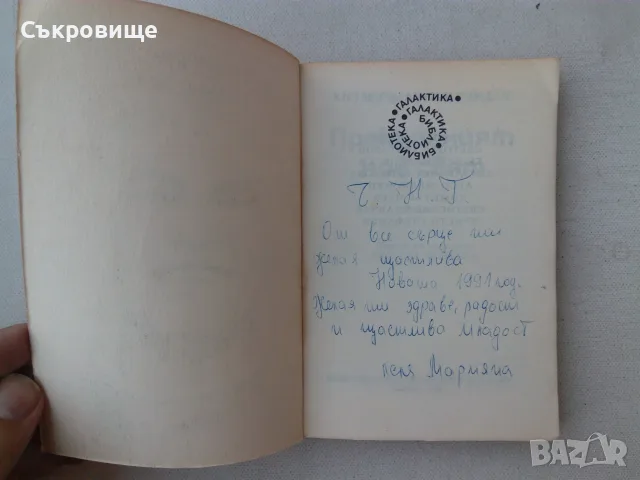 Съкровище
БИБЛИОТЕКА • ГАЛАКТИКА •
БИБЛИОТЕКА • ГАЛАКТИКА •
Ч. Н. Г.
От все сърце ти
желая щастлива
Новата 1991 год.
Желая ти здраве, радост
и щастлива младост
Марияна
BAZAR